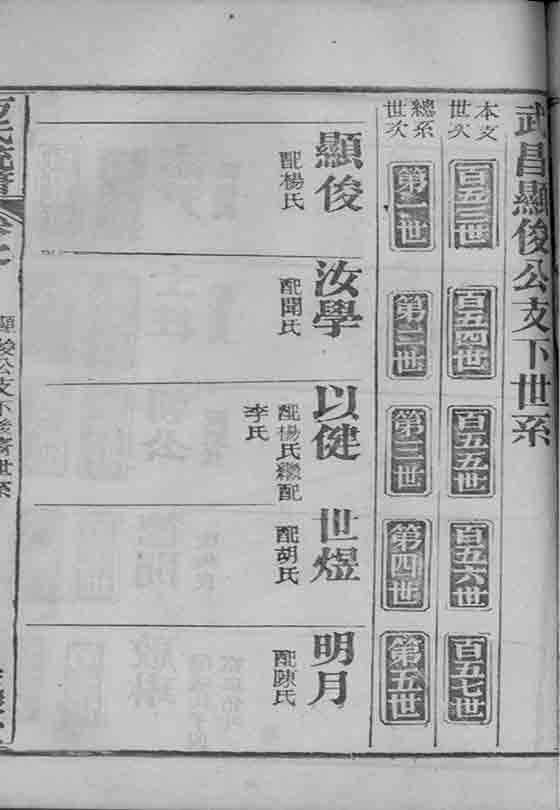 武昌顯俊公支下世系
本支世次
百五三世
百五四世
百五五世
百五六世
百五七世
總系世次
第一世
第二世
第三世
第四世
第五世
顯俊
配楊氏
汝學
配聞氏
以健
配楊氏繼配
李氏
世煜
配胡氏
明月
配陳氏
顯俊公支下
世系